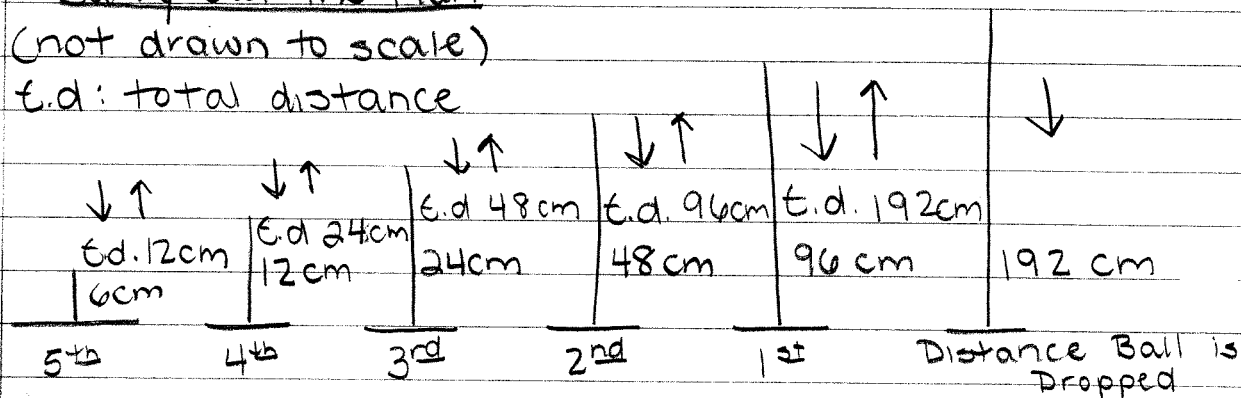 (not drawn to scale)
t.d: total distance
t.d. 12cm
6cm
t.d 24cm
12cm
t.d 48cm
24cm
t.d. 96cm
48cm
t.d. 192cm
96 cm
192 cm
5th
4th
3rd
2nd
1st
Distance Ball is
Dropped